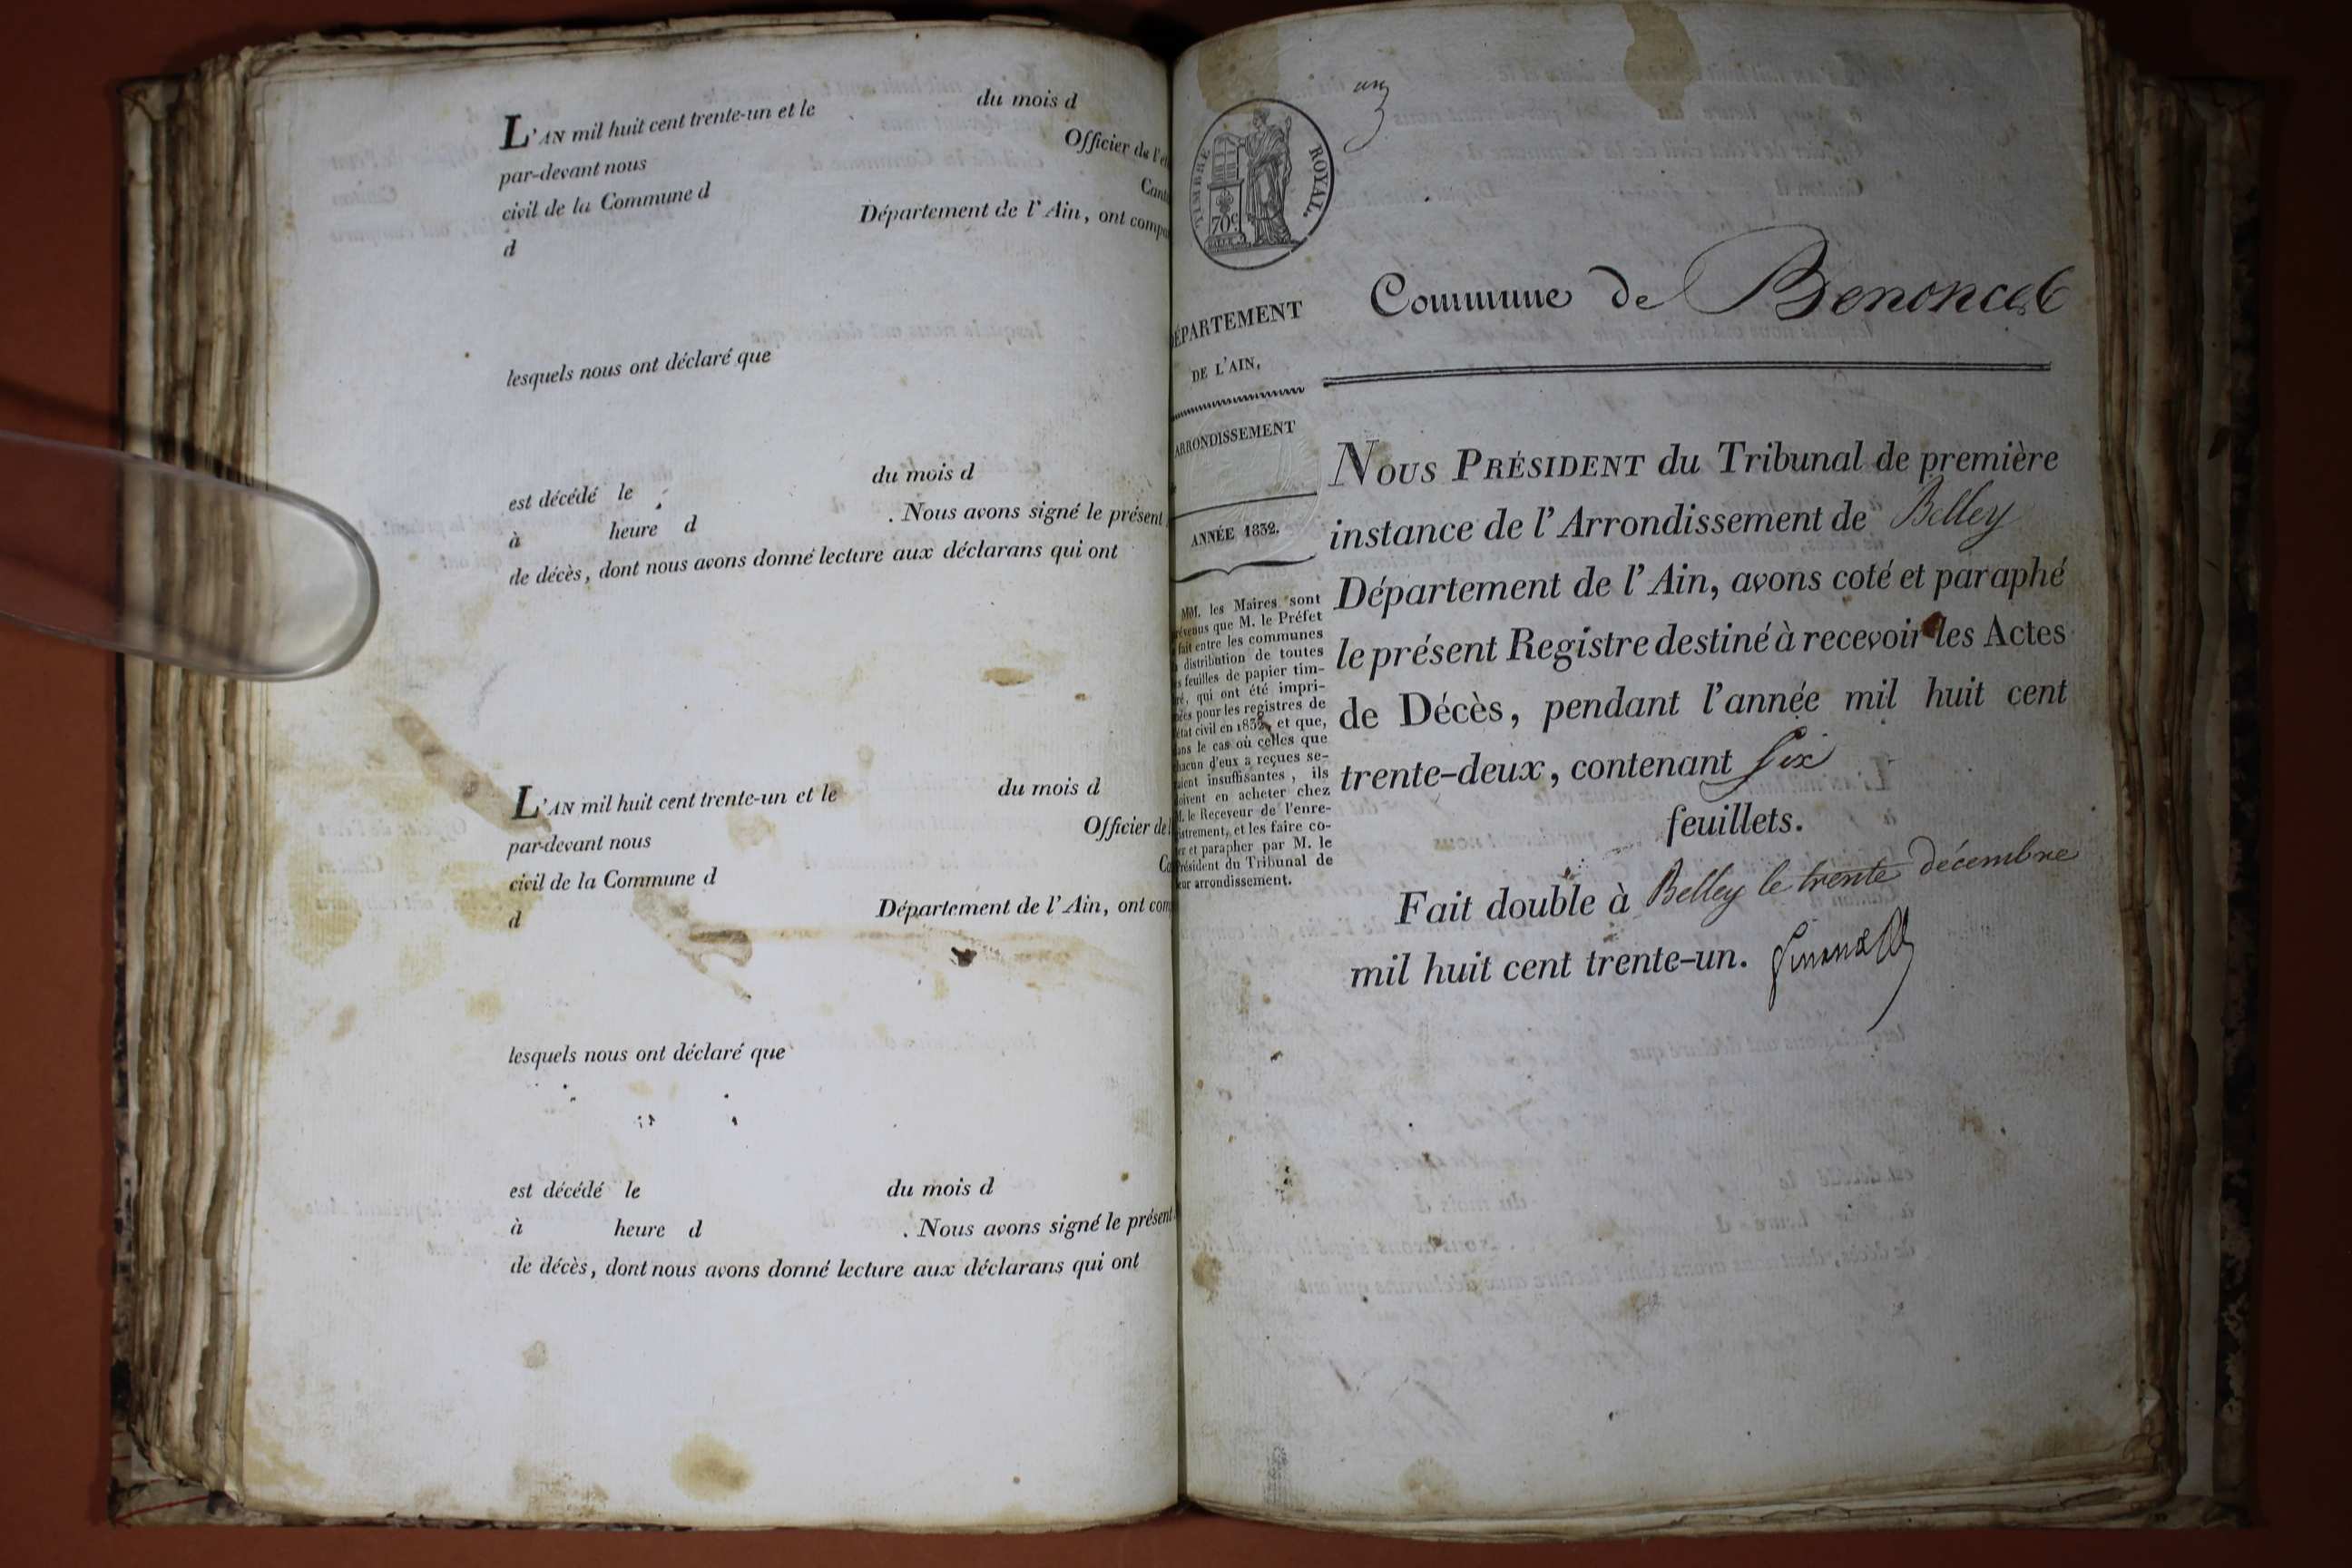 L'AN mil huit cent trente-un et le du mois d
par-devant nous Officier de l'é
civil de la Commune d Cant
d Département de l'Ain, ont compa
lesquels nous ont déclaré que
est décédé le du mois d
à heure d . Nous avons signé le présent
de décès, dont nous avons donné lecture aux déclarans qui ont
L'AN mil huit cent trente-un et le du mois d
par-devant nous Officier de l
civil de la Commune d Ca
d Département de l'Ain, ont com
lesquels nous ont déclaré que
est décédé le du mois d
à heure d . Nous avons signé le présent
de décès, dont nous avons donné lecture aux déclarans qui ont
TIMBRE ROYAL.
70c
Commune de Benonce
ÉPARTEMENT
DE L'AIN,
ARRONDISSEMENT
ANNÉE 1832.
MM. les Maires sont
révenus que M. le Préfet
fait entre les communes
distribution de toutes
s feuilles de papier tim-
ré, qui ont été impri-
ées pour les registres de
état civil en 1832, et que,
ans le cas où celles que
hacun d'eux a reçues se-
aient insuffisantes, ils
oivent en acheter chez
M. le Receveur de l'enre-
istrement, et les faire co-
er et parapher par M. le
Président du Tribunal de
eur arrondissement.
NOUS PRÉSIDENT du Tribunal de première
instance de l'Arrondissement de Belley
Département de l'Ain, avons coté et paraphé
le présent Registre destiné à recevoir les Actes
de Décès, pendant l'année mil huit cent
trente-deux, contenant six
feuillets.
Fait double à Belley le trente décembre
mil huit cent trente-un.